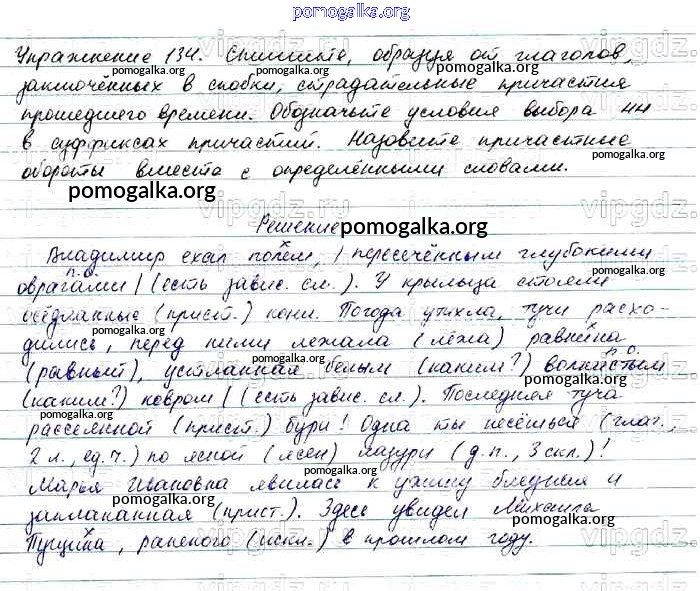 pomogalka.org
Упражнение 134. Спишите, образуя от глаголов,
заключённых в скобки, страдательные причастия
прошедшего времени. Обозначьте условия выбора нн
в суффиксах причастий. Назовите причастные
обороты вместе с определёнными словами.
Решение
Владимир ехал полем, | пересечённым глубокими
п.о.
оврагами | (есть завис. сл.). У крыльца стояли
осёдланные (прист.) кони. Погода утихла, тучи расхо-
дились, перед ними лежала (лёжа) равнина
(равный), устланная белым (каким?) волнистым
п.о.
(каким?) ковром | (есть завис. сл.). Последняя туча
рассеянной (прист.) бури! Одна ты несёшься (глаг.,
2 л., ед. ч.) по ясной (ясен) лазури (д.п., 3 скл.)!
Марья Ивановна явилась к ужину бледная и
заплаканная (прист.). Здесь увидел Михаила
Пущина, раненого (искл.) в прошлом году.